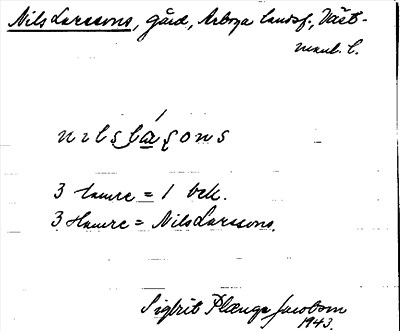 Nils Larssons, gård, Arboga landsf., Väst-
manl. l.
nɩlslá̱ʂons
3 hemre = 1 bek.
3 Hemre = Nils Larssons.
Sigbrit Plænge Jacobson
1943.